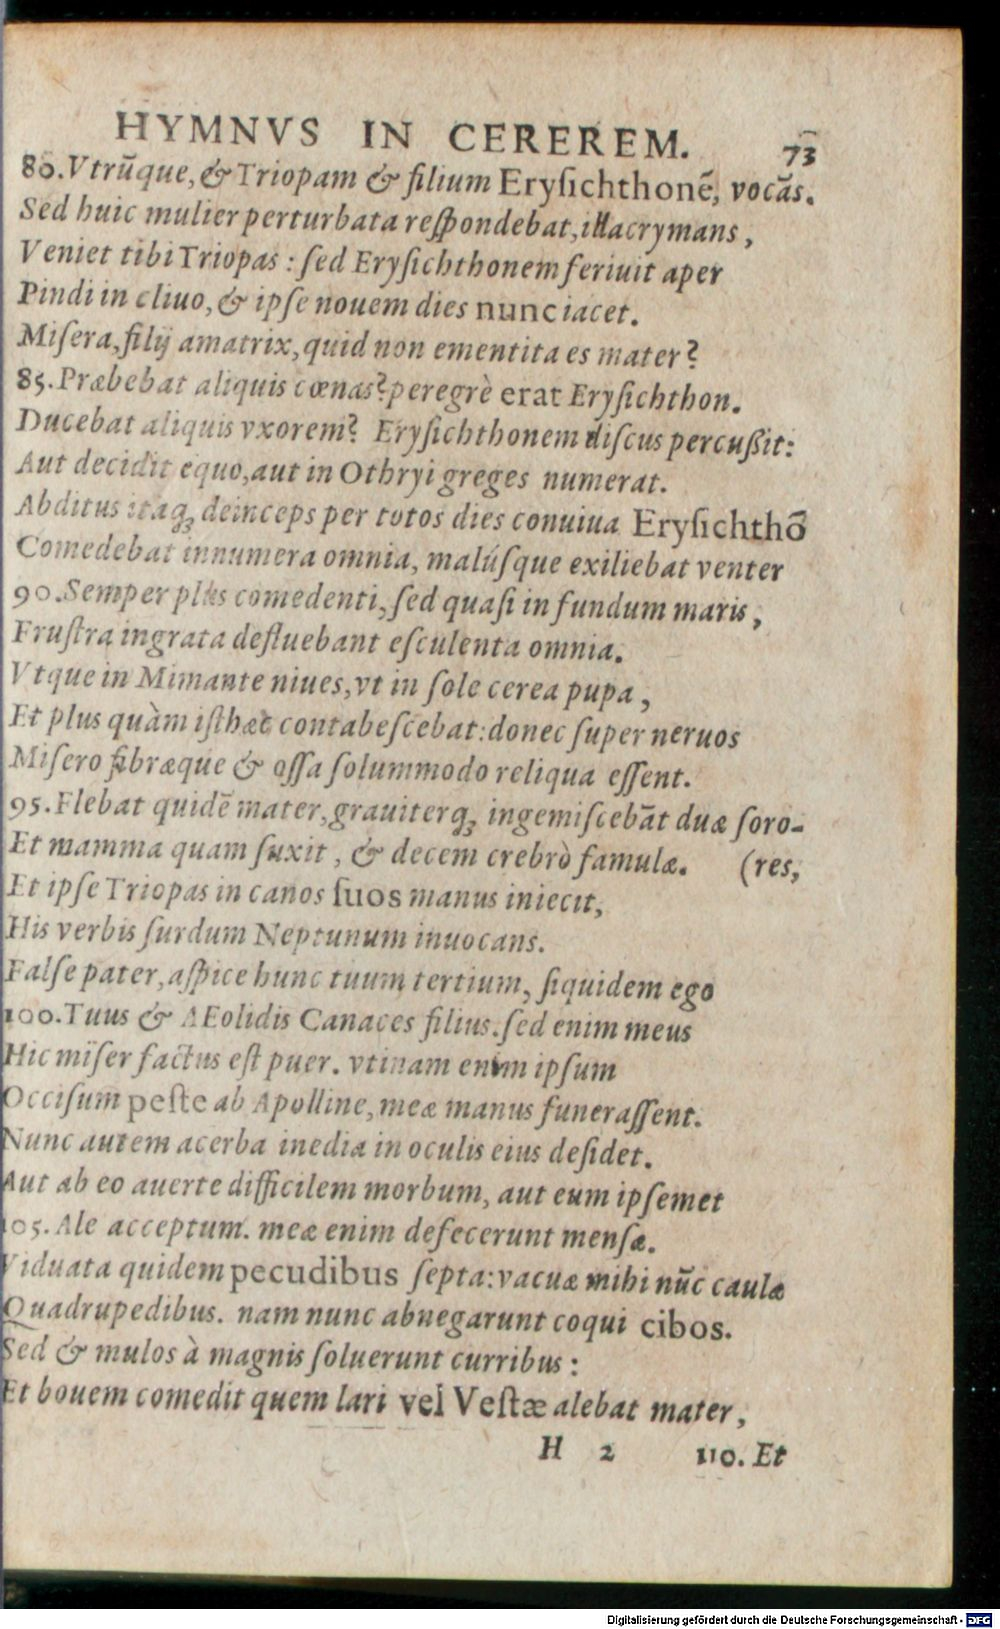 HYMNVS IN CEREREM. 73
80. Vtrūque, & Triopam & filium Eryſichthonē, vocās.
Sed huic mulier perturbata reſpondebat, illacrymans,
Veniet tibi Triopas: ſed Eryſichthonem feriuit aper
Pindi in cliuo, & ipſe nouem dies nunc iacet.
Miſera, filij amatrix, quid non ementita es mater?
85. Præbebat aliquis cœnas? peregrè erat Eryſichthon.
Ducebat aliquis vxorem? Eryſichthonem diſcus percußit:
Aut decidit equo, aut in Othryi greges numerat.
Abditus itaq; deinceps per totos dies conuiua Eryſichthō
Comedebat innumera omnia, malúſque exiliebat venter
90. Semper plus comedenti, ſed quaſi in fundum maris,
Fruſtra ingrata defluebant eſculenta omnia.
Vtque in Mimante niues, vt in ſole cerea pupa,
Et plus quàm iſthæc contabeſcebat: donec ſuper neruos
Miſero fibræque & oſſa ſolummodo reliqua eſſent.
95. Flebat quidē mater, grauiterq; ingemiſcebāt duæ ſoro-
Et mamma quam ſuxit, & decem crebrò famulæ. (res,
Et ipſe Triopas in canos ſuos manus iniecit,
His verbis ſurdum Neptunum inuocans.
Falſe pater, aſpice hunc tuum tertium, ſiquidem ego
100. Tuus & AEolidis Canaces filius. ſed enim meus
Hic miſer factus eſt puer. vtinam enim ipſum
Occiſum peſte ab Apolline, meæ manus funeraſſent.
Nunc autem acerba inedia in oculis eius deſidet.
Aut ab eo auerte difficilem morbum, aut eum ipſemet
105. Ale acceptum. meæ enim defecerunt menſæ.
Viduata quidem pecudibus ſepta: vacuæ mihi nūc caulæ
Quadrupedibus. nam nunc abnegarunt coqui cibos.
Sed & mulos à magnis ſoluerunt curribus:
Et bouem comedit quem lari vel Veſtæ alebat mater,
H 2 110. Et
Digitalisierung gefördert durch die Deutsche Forschungsgemeinschaft - DFG